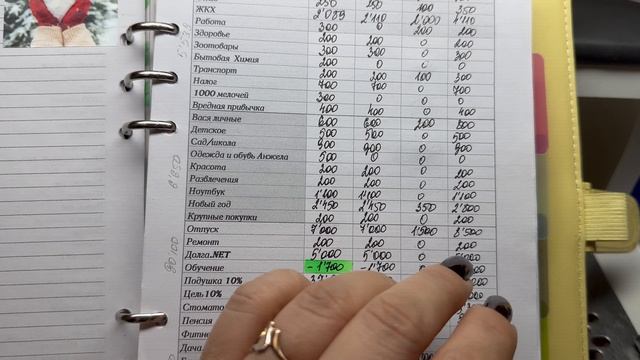 250 250 100 350
ЖКХ 2'089 2'110 2'000 4'110
Работа 300 0
Здоровье 200 200
Зоотовары 200 200 0 200
Бытовая Химия 300 300 0 300
Транспорт 200 200 100 300
Налог 700 700 0 700
1000 мелочей 300 0 0 0
Вредная привычка 400 400 0 400
Вася личные 600 600 200 800
Детское 500 500 0 500
Сад/школа 900 900 0 900
Одежда и обувь Анжела 500 0 0 0
Красота 200 200 0 200
Развлечения 200 200 0 200
Ноутбук 1'100 1'100 0 1'100
Новый год 2'450 2'450 350 2'800
Крупные покупки 200 200 0 200
Отпуск 7'000 7'000 1'500 8'500
Ремонт 200 200 0 200
Долга.NET 5'000 5'000 0
Обучение -1'700 -1'700
Подушка 10%
Цель 10%
Стомато
Пенсия
Фитне
Дача
8'850